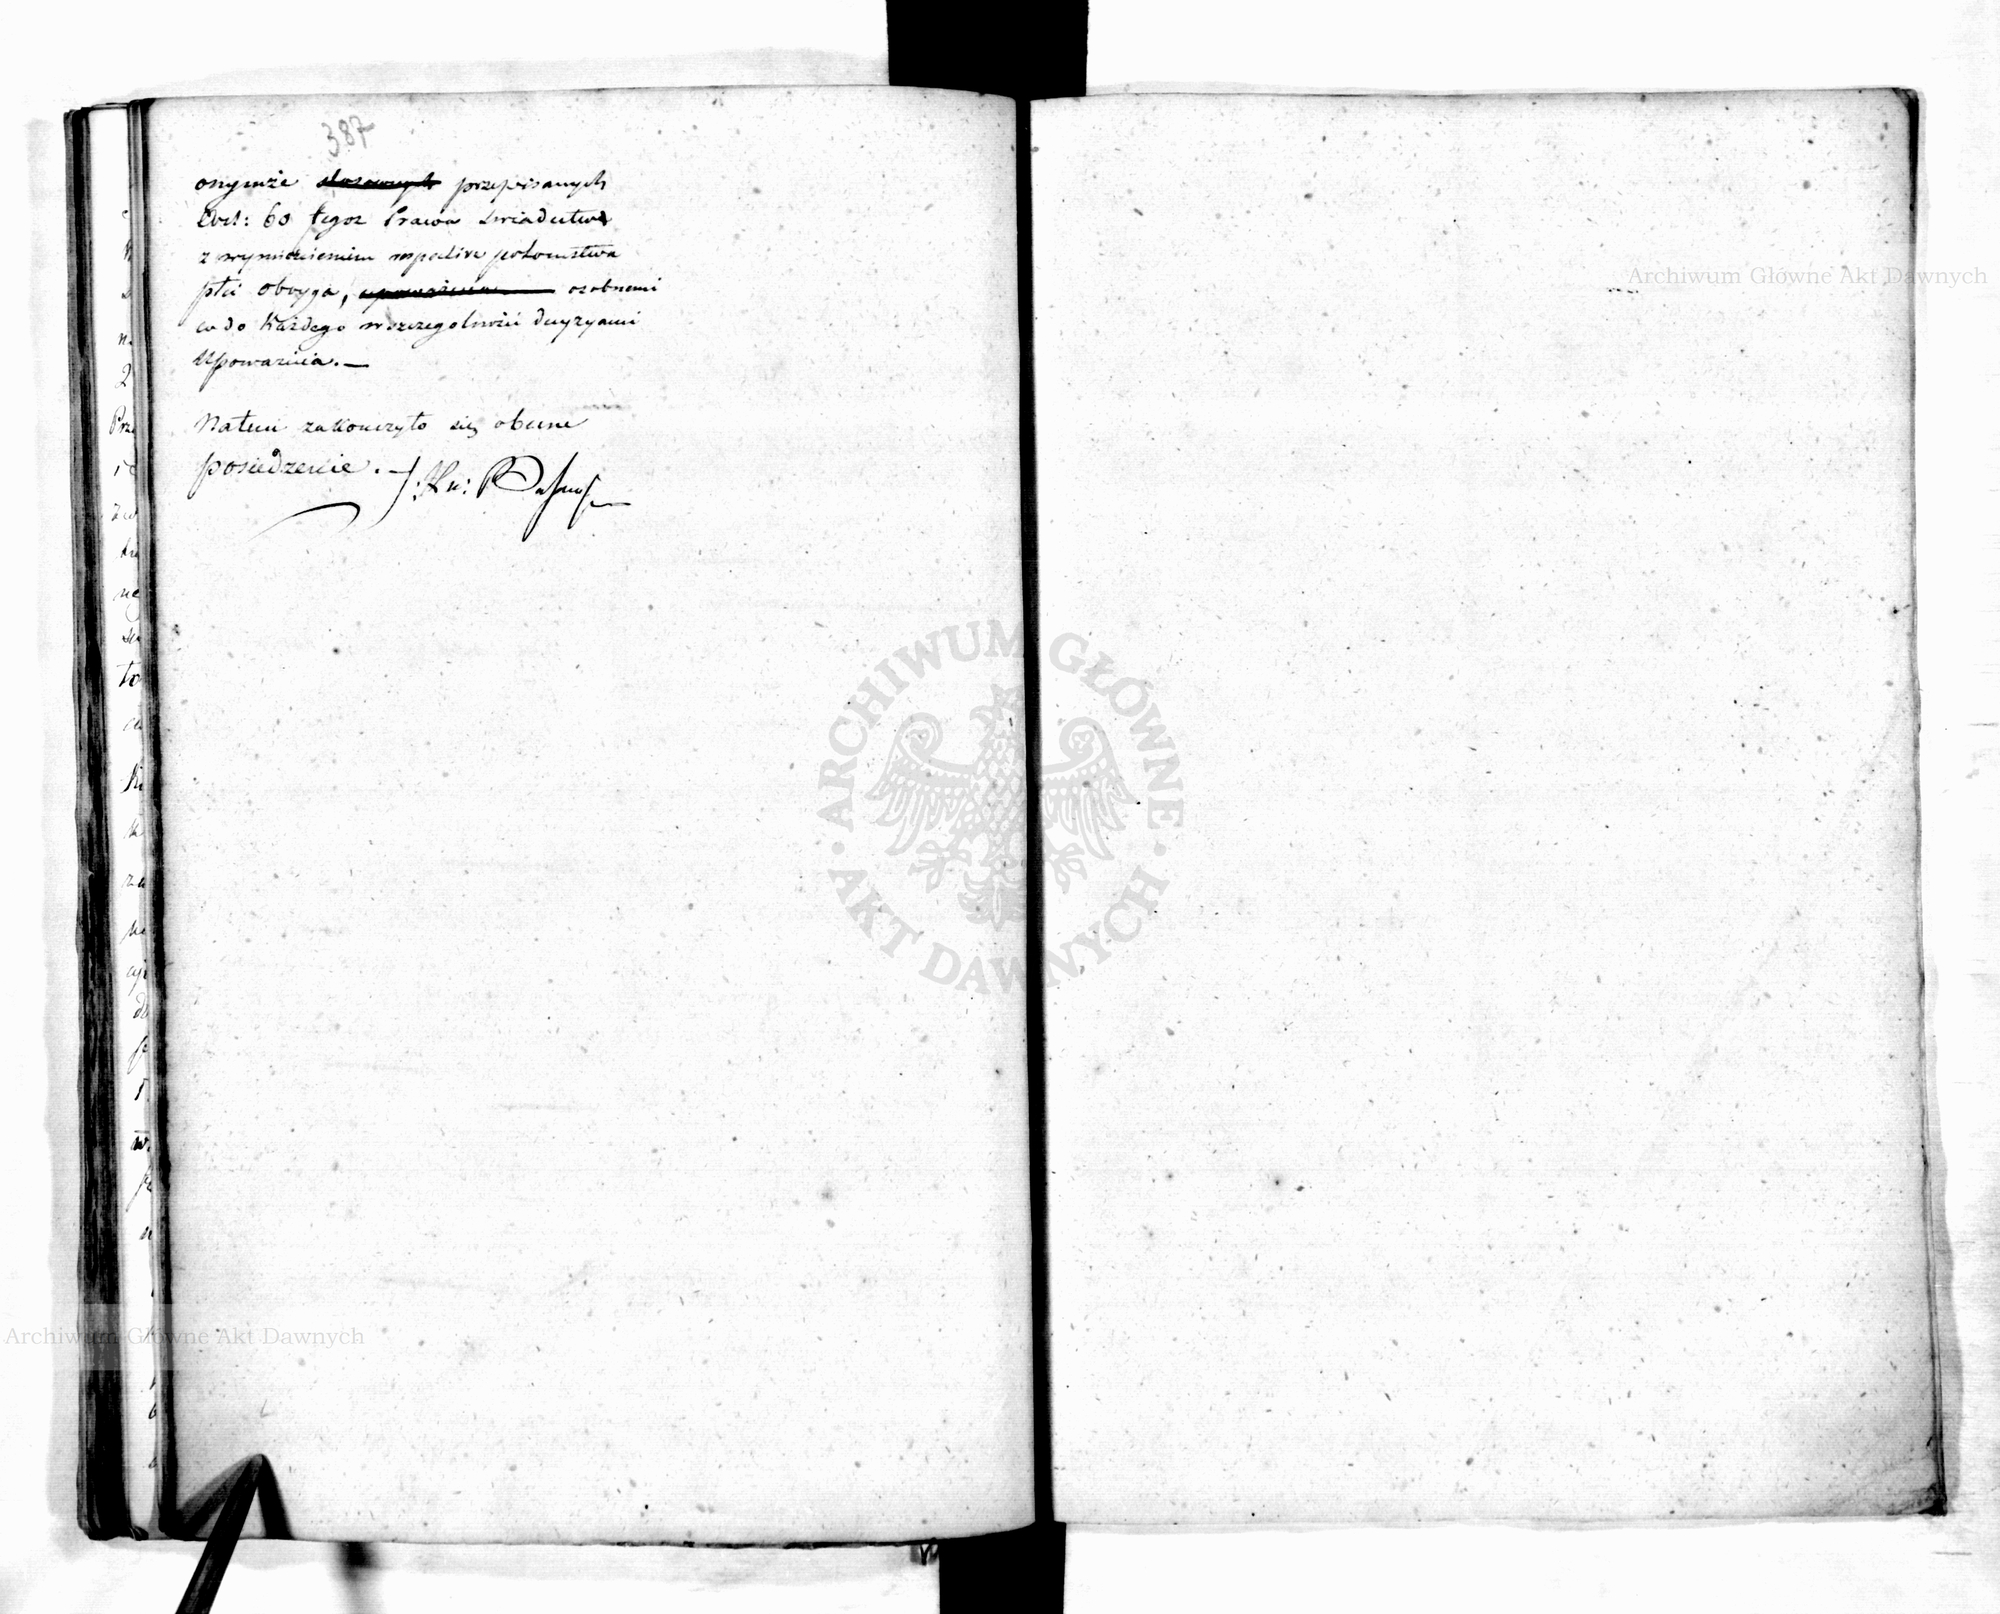 387
onymże stosownych przepisanych
Art: 60 tegoz Prawa swiadectwa
z wymienieniem respective potomstwa
płci oboyga, osobnemi
co do każdego w szczegolności decyzyami
Upoważnia. —
Natem zakończyło się obecne
posiedzenie. —
Archiwum Główne Akt Dawnych
ARCHIWUM GŁÓWNE AKT DAWNYCH
Archiwum Główne Akt Dawnych